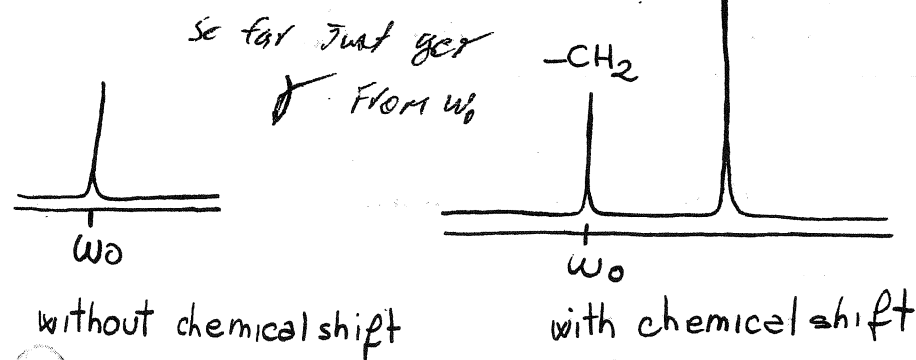 so far Just get
γ From ω₀
–CH₂
ω₀
ω₀
without chemical shift
with chemical shift